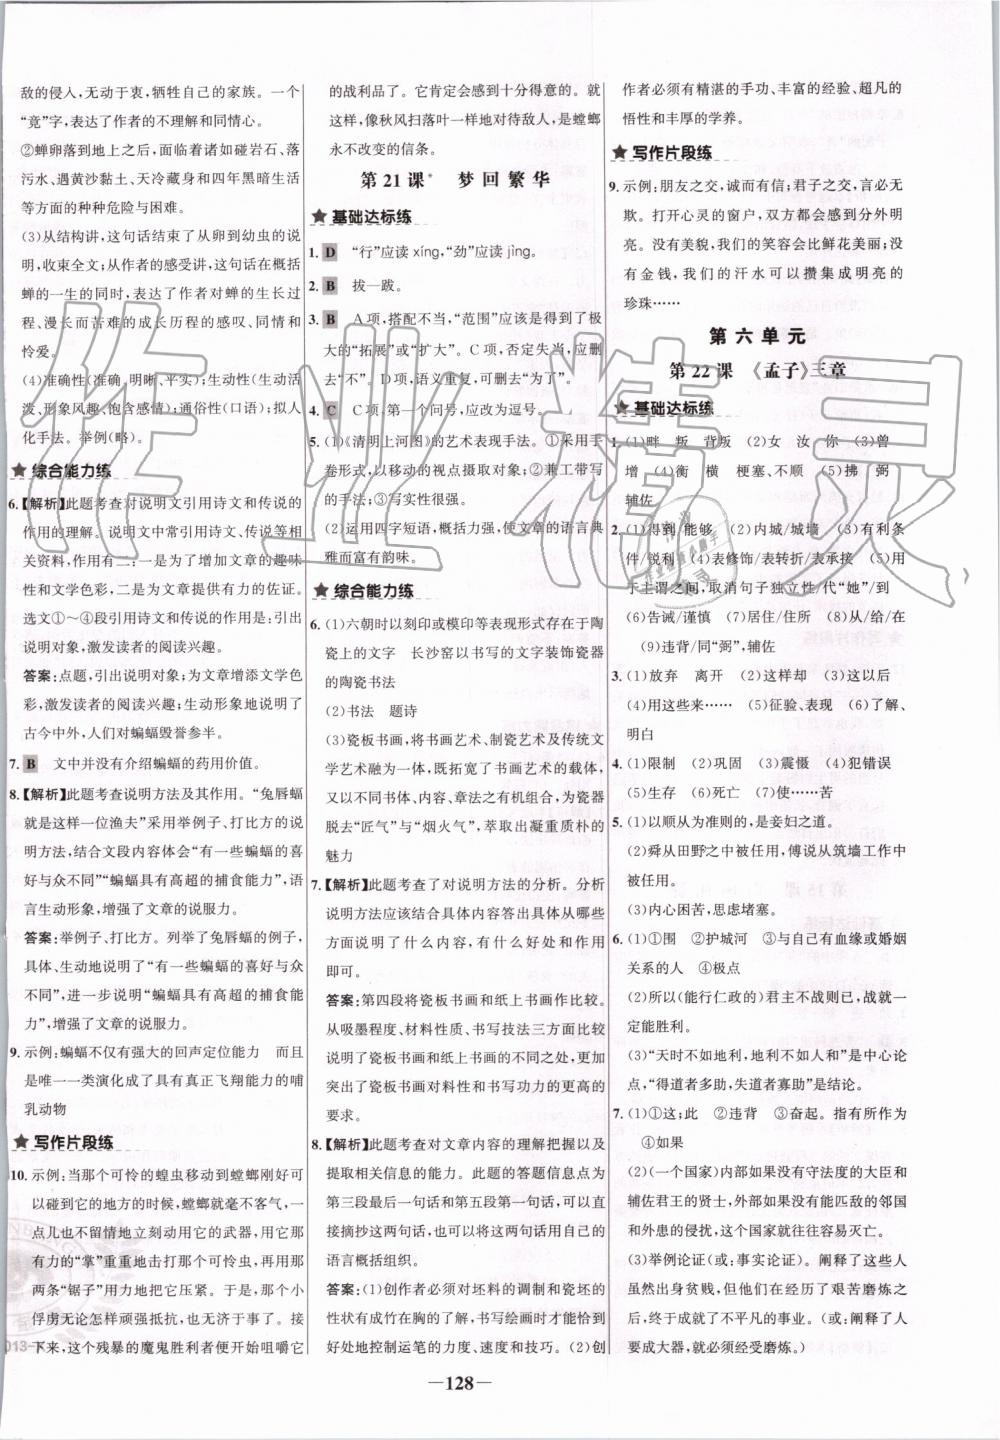 敌的侵入,无动于衷,牺牲自己的家族。一个
“竟”字,表达了作者的不理解和同情心。
②蝉卵落到地上之后,面临着诸如碰岩石、落
污水、遇黄沙黏土、天冷藏身和四年黑暗生活
等方面的种种危险与困难。
(3)从结构讲,这句话结束了从卵到幼虫的说
明,收束全文;从作者的感受讲,这句话在概括
蝉的一生的同时,表达了作者对蝉的生长过
程、漫长而苦难的成长历程的感叹、同情和
怜爱。
(4)准确性(准确、明晰、平实);生动性(生动活
泼、形象风趣、饱含感情);通俗性(口语);拟人
化手法。举例(略)。
★ 综合能力练
6.【解析】此题考查对说明文引用诗文和传说的
作用的理解。说明文中常引用诗文、传说等相
关资料,作用有二:一是为了增加文章的趣味
性和文学色彩,二是为文章提供有力的佐证。
选文①~④段引用诗文和传说的作用是:引
出说明对象,激发读者的阅读兴趣。
答案:点题,引出说明对象;为文章增添文学色
彩,激发读者的阅读兴趣;生动形象地说明了
古今中外,人们对蝙蝠毁誉参半。
7. B 文中并没有介绍蝙蝠的药用价值。
8.【解析】此题考查说明方法及其作用。“兔唇蝠
就是这样一位渔夫”采用举例子、打比方的说
明方法,结合文段内容体会“有一些蝙蝠的喜
好与众不同”“蝙蝠具有高超的捕食能力”,生
动形象,增强了文章的说服力。
答案:举例子、打比方。列举了兔唇蝠的例子,
具体、生动地说明了“有一些蝙蝠的喜好与众
不同”,进一步说明“蝙蝠具有高超的捕食能
力”,增强了文章的说服力。
9. 示例:蝙蝠不仅有强大的回声定位能力 而且
是唯一一类演化成了具有真正飞翔能力的哺
乳动物
★ 写作片段练
10. 示例:当那个可怜的蝗虫移动到螳螂刚好可
以碰到它的地方的时候,螳螂就毫不客气,一
点儿也不留情地立刻动用它的武器,用它那
有力的“掌”重重地击打那个可怜虫,再用那
两条“锯子”用力地把它压紧。于是,那个小
俘虏无论怎样顽强抵抗,也无济于事了。接
下来,这个残暴的魔鬼胜利者便开始咀嚼它
的战利品了。它肯定会感到十分得意的。就
这样,像秋风扫落叶一样地对待敌人,是螳螂
永不改变的信条。
第 21 课* 梦 回 繁 华
★ 基础达标练
1. D “行”应读 xíng,“劲”应读 jìng。
2. B 拔—跋。
3. B A 项,搭配不当,“范围”应该是得到了极
大的“拓展”或“扩大”。C 项,否定失当,应删
去“不”。D 项,语义重复,可删去“为了”。
4. C C 项,第一个问号,应改为逗号。
5. (1)《清明上河图》的艺术表现手法。①采用手
卷形式,以移动的视点摄取对象;②兼工带写
的手法;③写实性很强。
(2)运用四字短语,概括力强,使文章的语言典
雅而富有韵味。
★ 综合能力练
6. (1)六朝时以刻印或模印等表现形式存在于陶
瓷上的文字 长沙窑以书写的文字装饰瓷器
的陶瓷书法
(2)书法 题诗
(3)瓷板书画,将书画艺术、制瓷艺术及传统文
学艺术融为一体,既拓宽了书画艺术的载体,
又以不同书体、内容、章法之有机组合,为瓷器
脱去“匠气”与“烟火气”,萃取出凝重质朴的
魅力
7.【解析】此题考查了对说明方法的分析。分析
说明方法应该结合具体内容答出具体从哪些
方面说明了什么内容,有何好处和作用
即可。
答案:第四段将瓷板书画和纸上书画作比较。
从吸墨程度、材料性质、书写技法三方面比较
说明了瓷板书画与纸上书画的不同之处,更加
突出了瓷板书画对料性和书写功力的更高的
要求。
8.【解析】此题考查对文章内容的理解把握以及
提取相关信息的能力。此题的答题信息点为
第三段最后一句话和第五段第一句话,可以直
接摘抄这两句话,也可以将这两句话用自己的
语言概括组织。
答案:(1)创作者必须对坯料的调制和瓷坯的
性状有成竹在胸的把握,书写绘画时才能恰到
好处地控制运笔的力度、速度和技巧。(2)创
作者必须有精湛的手功、丰富的经验、超凡的
悟性和丰厚的学养。
★ 写作片段练
9. 示例:朋友之交,诚而有信;君子之交,言必无
欺。打开心灵的窗户,双方都将感到分外明
亮。没有美貌,我们的笑容会比鲜花美丽;没
有金钱,我们的汗水可以攒集成明亮的
珍珠……
第 六 单 元
第 22 课 《孟子》三章
★ 基础达标练
1. (1)畔 叛 背叛 (2)女 汝 你 (3)曾
增 (4)衡 横 梗塞、不顺 (5)拂 弼
辅佐
2. (1)得到/能够 (2)内城/城墙 (3)有利条
件/锐利 (4)表修饰/表转折/表承接 (5)用
于主谓之间,取消句子独立性/代“她”/到
(6)告诫/谨慎 (7)居住/住所 (8)从/给/在
(9)违背/同“弼”,辅佐
3. (1)放弃 离开 (2)这样却 (3)这以后
(4)用这些来…… (5)征验、表现 (6)了解、
明白
4. (1)限制 (2)巩固 (3)震慑 (4)犯错误
(5)生存 (6)死亡 (7)使……受苦
5. (1)以顺从为准则的,是妾妇之道。
(2)舜从田野之中被任用,傅说从筑墙工作中
被任用。
(3)内心困苦,思虑堵塞。
6. (1)①围 ②护城河 ③与自己有血缘或婚姻
关系的人 ④极点
(2)所以(能行仁政的)君主不战则已,战就一
定能胜利。
(3)“天时不如地利,地利不如人和”是中心论
点,“得道者多助,失道者寡助”是结论。
7. (1)①这;此 ②违背 ③奋起。指有所作为
④如果
(2)(一个国家)内部如果没有守法度的大臣和
辅佐君王的贤士,外部如果没有能匹敌的邻国
和外患的侵扰,这个国家就往往容易灭亡。
(3)举例论证(或:事实论证)。阐释了这些人
虽然出身贫贱,但他们在经历了艰苦磨炼之
后,都成就了不平凡的事业。(或:阐释了人
要成大器,就必须经受磨炼。)
— 128 —
作业精灵
013-